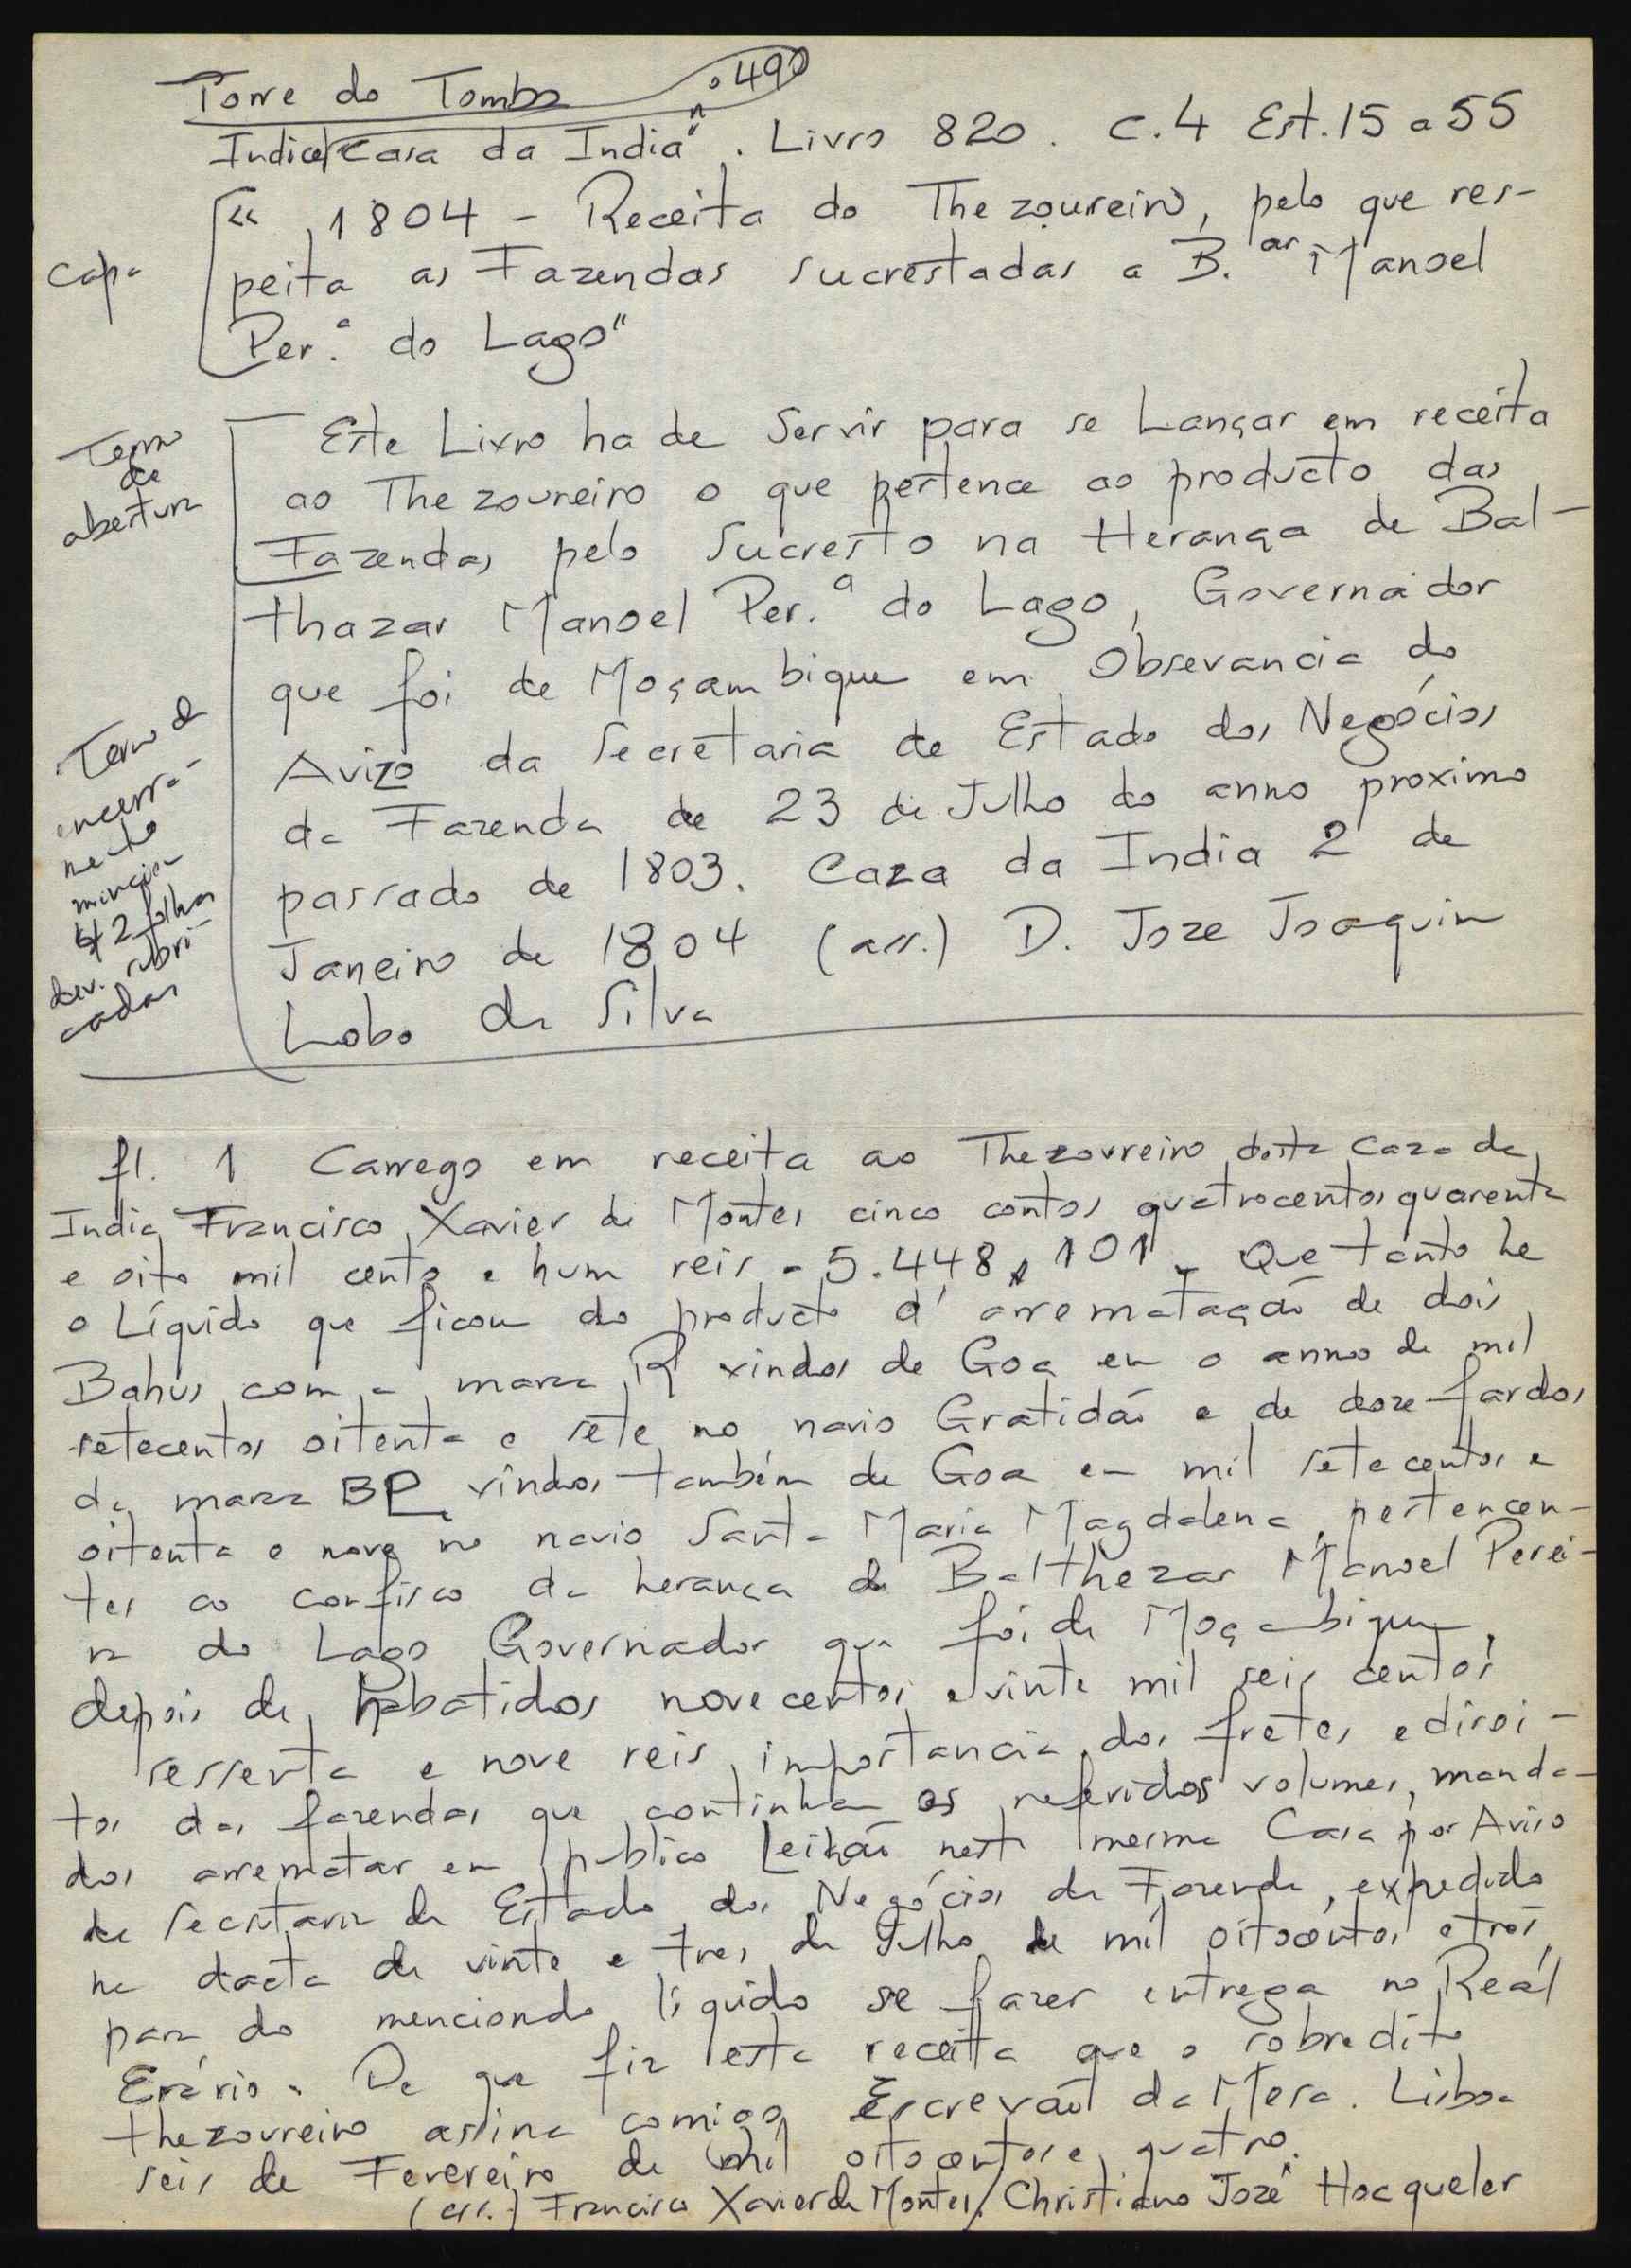 Torre do Tombo nº 490
Indice "Casa da India". Livro 820. C.4 Est.15 a 55
capa
« 1804 - Receita do Thezoureiro, pelo que res-
peita as Fazendas sucrestadas a B.ar Manoel
Per.ª do Lago"
Termo
de
abertura
Este Livro ha de Servir para se Lançar em receita
ao Thezoureiro o que pertence ao producto das
Fazendas pelo Sucresto na Herança de Bal-
thazar Manoel Per.ª do Lago, Governador
que foi de Mosambique em Obsevancia do
Avizo da Secretaria de Estado dos Negócios
da Fazenda de 23 de Julho do anno proximo
passado de 1803. Caza da India 2 de
Janeiro de 1804 (ass.) D. Joze Joaquim
Lobo da Silva
Termo de
encerra-
mento
menciona
42 folhas
dev. rubri-
cadas
fl. 1 Carrego em receita ao Thezoureiro desta Caza da
India Francisco Xavier de Montes cinco contos quatrocentos quarenta
e oito mil cento e hum reis - 5.448$101 - Que tanto he
o Líquido que ficou do producto d'arrematação de dois
Bahus com a marca R vindos de Goa em o anno de mil
setecentos oitenta e sete no navio Gratidão e de doze fardos
da marca BP vindos também de Goa em mil setecentos e
oitenta e nove no navio Santa Maria Magdalena, pertencen-
tes ao confisco da herança de Balthezar Manoel Perei-
ra do Lago Governador que foi de Moçambique,
depois de rabatidos novecentos e vinte mil seis centos
sessenta e nove reis, importancia dos fretes e direi-
tos das fazendas que continham os referidos volumes, manda-
dos arrematar em publico Leilão nesta mesma Casa por Aviso
da Secretaria de Estado dos Negócios da Fazenda, expedido
na dacta de vinte e tres de Julho de mil oitocentos e trez
para do mencionado líquido se fazer entrega no Real
Erário. De que fiz esta receita que o sobredito
thezoureiro assina comigo Escrevão da Mesa. Lisboa
seis de Fevereiro de mil oitocentos e quatro.
(ass.) Francisco Xavier de Montes / Christiano José Hocqueler